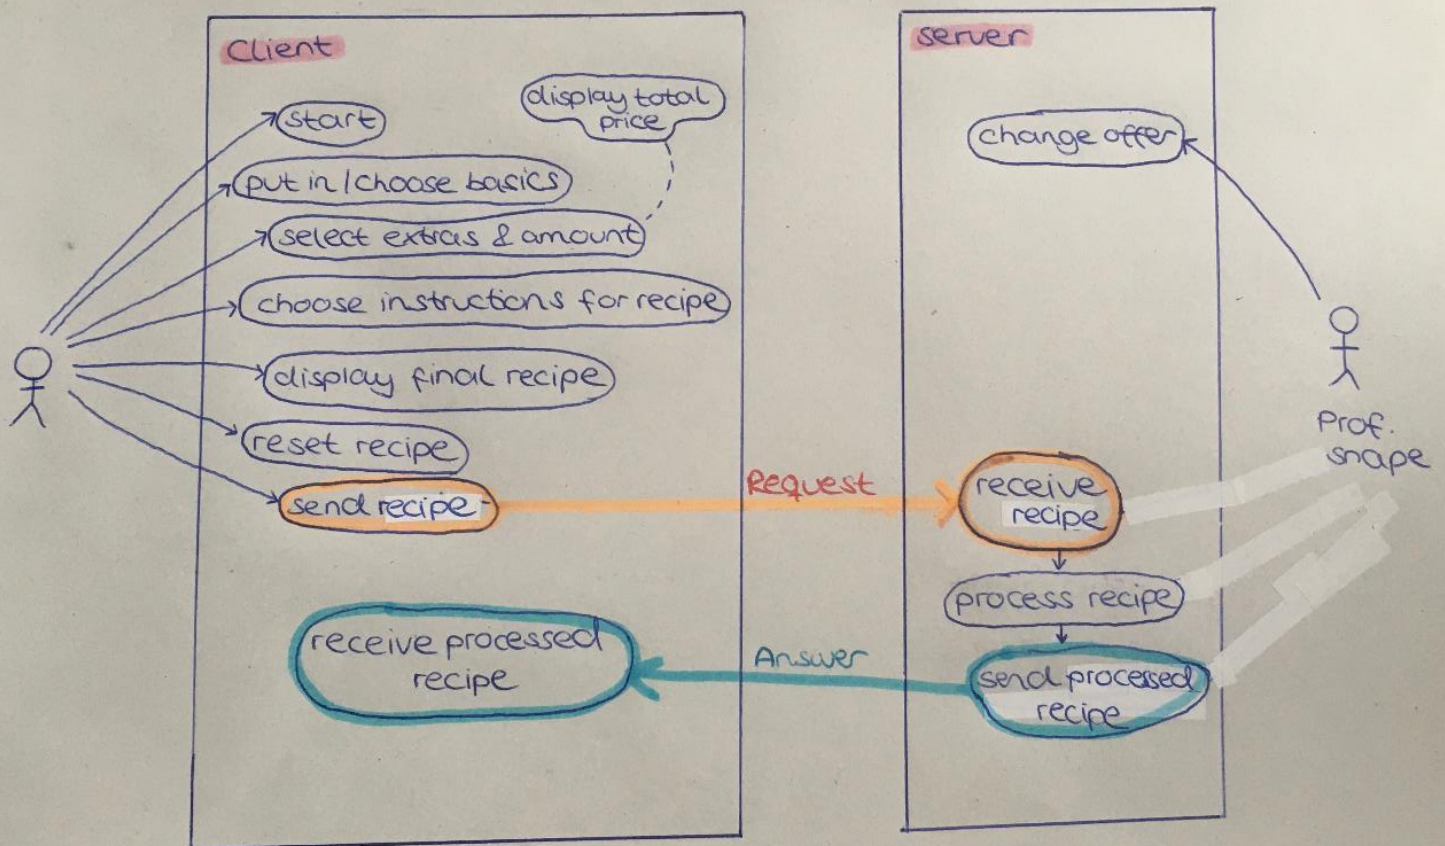 Client
start
display total
price
put in / choose basics
select extras & amount
choose instructions for recipe
display final recipe
reset recipe
send recipe
Request
receive processed
recipe
Answer
server
change offer
Prof.
snape
receive
recipe
process recipe
send processed
recipe